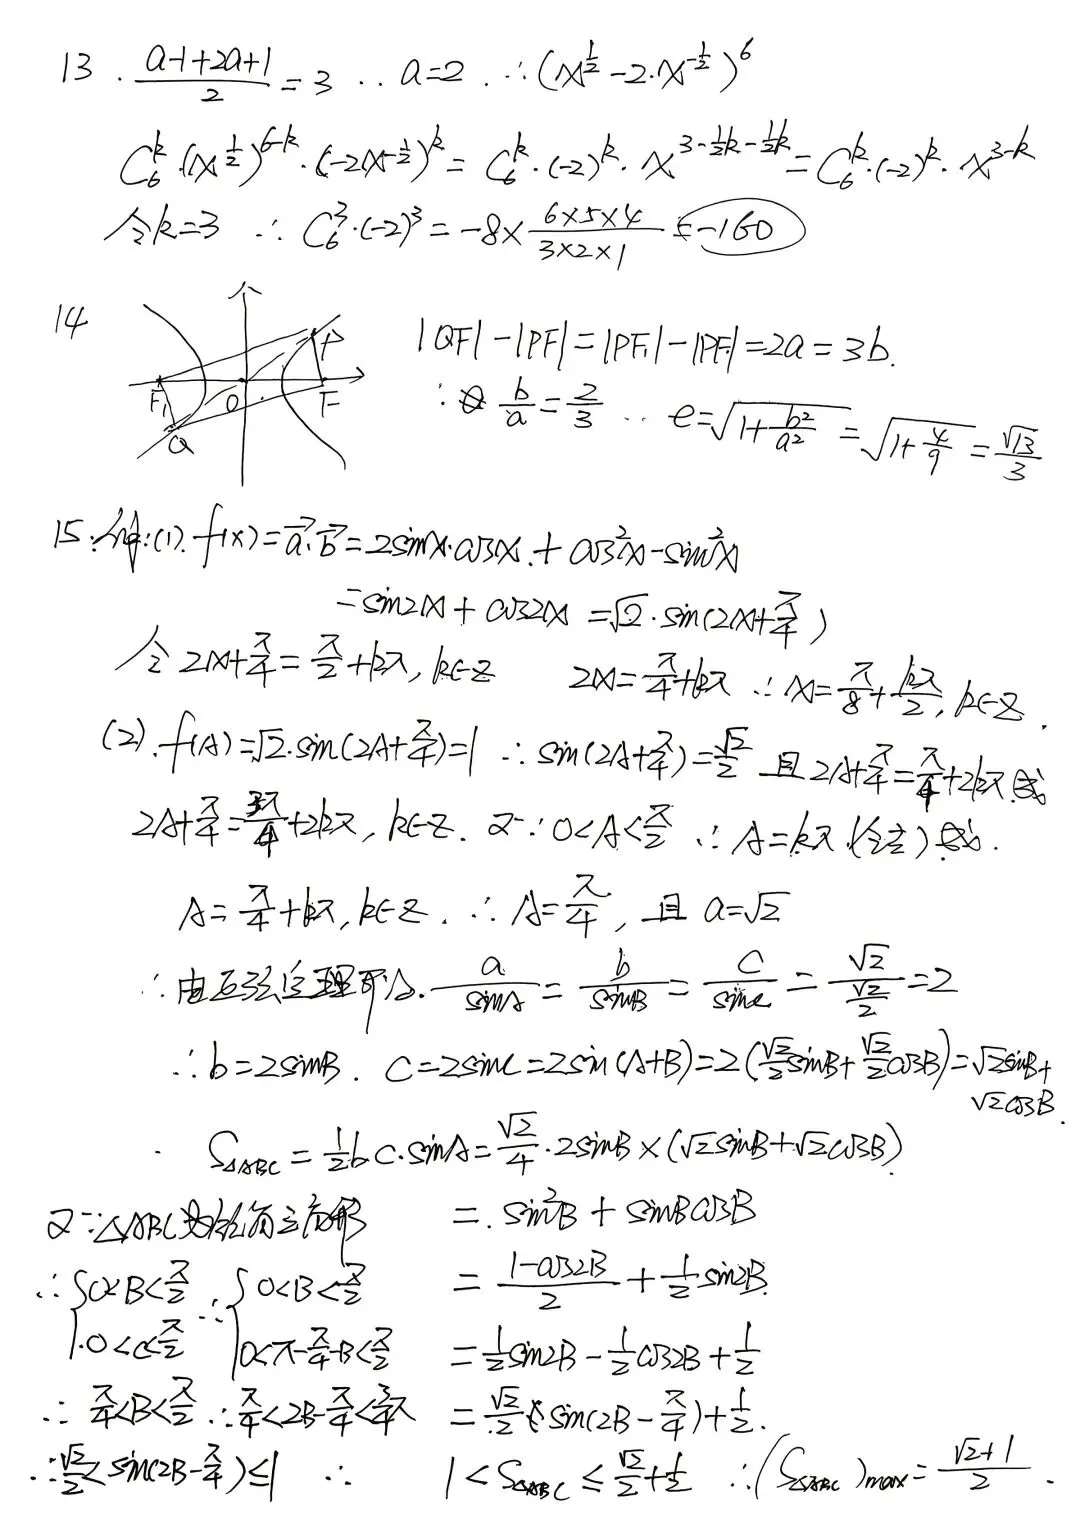 13. (a-1+2a+1)/2 = 3 ∴ a=2 . ∴ (x^{1/2} - 2·x^{-1/2})^6
C_6^k·(x^{1/2})^{6-k}·(-2x^{-1/2})^k = C_6^k·(-2)^k·x^{3-1/2k-1/2k} = C_6^k·(-2)^k·x^{3-k}
令k=3 ∴ C_6^3·(-2)^3 = -8× (6×5×4)/(3×2×1) = -160
14
P
F₁ O F
Q
|QF|-|PF|=|PF₁|-|PF|=2a=3b.
∴ b/a = 2/3 ∴ e=√(1+b²/a²) = √(1+4/9) = √13/3
15.解:(1). f(x)=a⃗·b⃗=2sinx·cosx.+cos²x-sin²x
=sin2x+cos2x=√2·sin(2x+π/4)
令 2x+π/4=π/2+kπ, k∈Z 2x=π/4+kπ ∴ x=π/8+kπ/2, k∈Z.
(2). f(A)=√2·sin(2A+π/4)=1 ∴ sin(2A+π/4)=√2/2 且 2A+π/4=π/4+2kπ 或
2A+π/4=3π/4+2kπ, k∈Z. 又∵ 0<A<π/2 ∴ A=kπ.(舍去) 或.
A=π/4+kπ, k∈Z. ∴ A=π/4, 且 a=√2
∴由正弦定理可得. a/sinA = b/sinB = c/sinC = √2/(√2/2) =2
∴b=2sinB. c=2sinC=2sin(A+B)=2(√2/2sinB+√2/2cosB)=√2sinB+
√2cosB.
S△ABC=1/2bc·sinA=√2/4·2sinB×(√2sinB+√2cosB)
=.sin²B+sinBcosB
=(1-cos2B)/2+1/2sin2B.
=1/2sin2B-1/2cos2B+1/2
=√2/2sin(2B-π/4)+1/2.
又∵△ABC为锐角三角形
∴{0<B<π/2 ∴{0<B<π/2
0<C<π/2 0<π-π/4-B<π/2
∴ π/4<B<π/2 ∴π/4<2B-π/4<3/4π
∴√2/2<sin(2B-π/4)≤1 ∴ 1<S△ABC≤√2/2+1/2 ∴(S△ABC)max=(√2+1)/2.